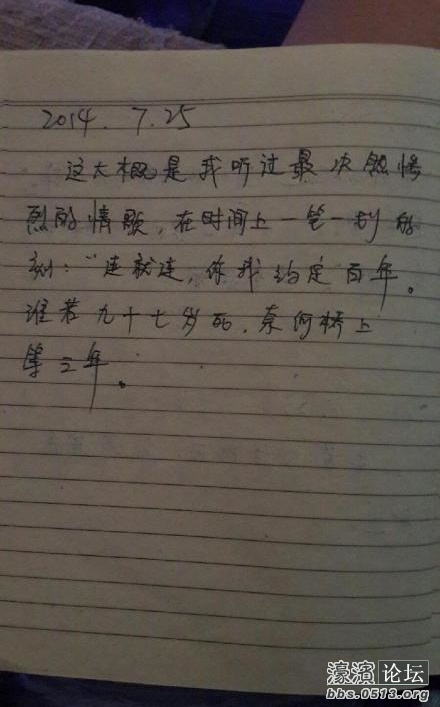 2014. 7. 25
这大概是我听过最决绝惨
烈的情歌,在时间上一笔一划的
刻:“连就连,你我约定百年。
谁若九十七岁死,奈何桥上
等三年。
濠滨论坛
bbs.0513.org